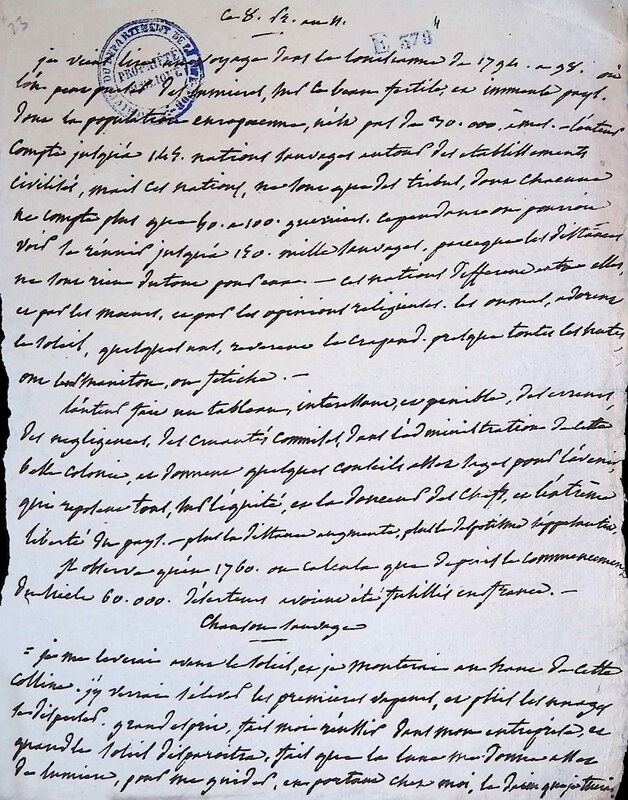 23
ce 8. fr. an 11.
E 379
je viens lire un voyage dans la louisianne de 1794. a 98. où
l'on peut puiser des lumieres, sur ce beau fertile, et immense pays.
dont la population européenne, n'est pas de 70.000. âmes. - l'auteur
compte jusqu'à nations sauvages autour des établissements
civilisés, mais ces nations, ne sont que des tribus, dont chacune
ne compte plus que 60. a 100. guerriers. cependant on pourroit
voir se réunir jusqu'à 150. mille sauvages, parceque les distances
ne sont rien du tout pour eux. - ces nations different entre elles,
et par les moeurs, et par les opinions religieuses. les unes, adorent
le soleil, quelques unes, reverent le crapaud. presque toutes les autres,
ont leur manitou, ou fetiche. -
l'auteur fait un tableau, interessant, et penible, des erreurs
des negligences, des cruautés commises, dans l'administration de cette
belle colonie, et donne quelques conseils assez sages pour l'avenir
qui reposent tous, sur l'équité, et la douceur des chefs, et l'extrême
liberté du pays. - plus la distance augmente, plus le despotisme s'appesantit.
Il observe qu'en 1760. on calcula que depuis le commencement
du siecle 60.000. déserteurs avoient été fusillés en france. -
Chanson sauvage
= je me leverai avant le soleil, et je monterai au haut de cette
colline. j'y verrai s'élever les premieres vapeurs, et puis les nuages
se disperser. grand esprit, fais moi réussir dans mon entreprise, et
quand le soleil disparoitra, fais que la lune me donne assez
de lumiere, pour me guider, en portant chez moi, le daim que j'aurai